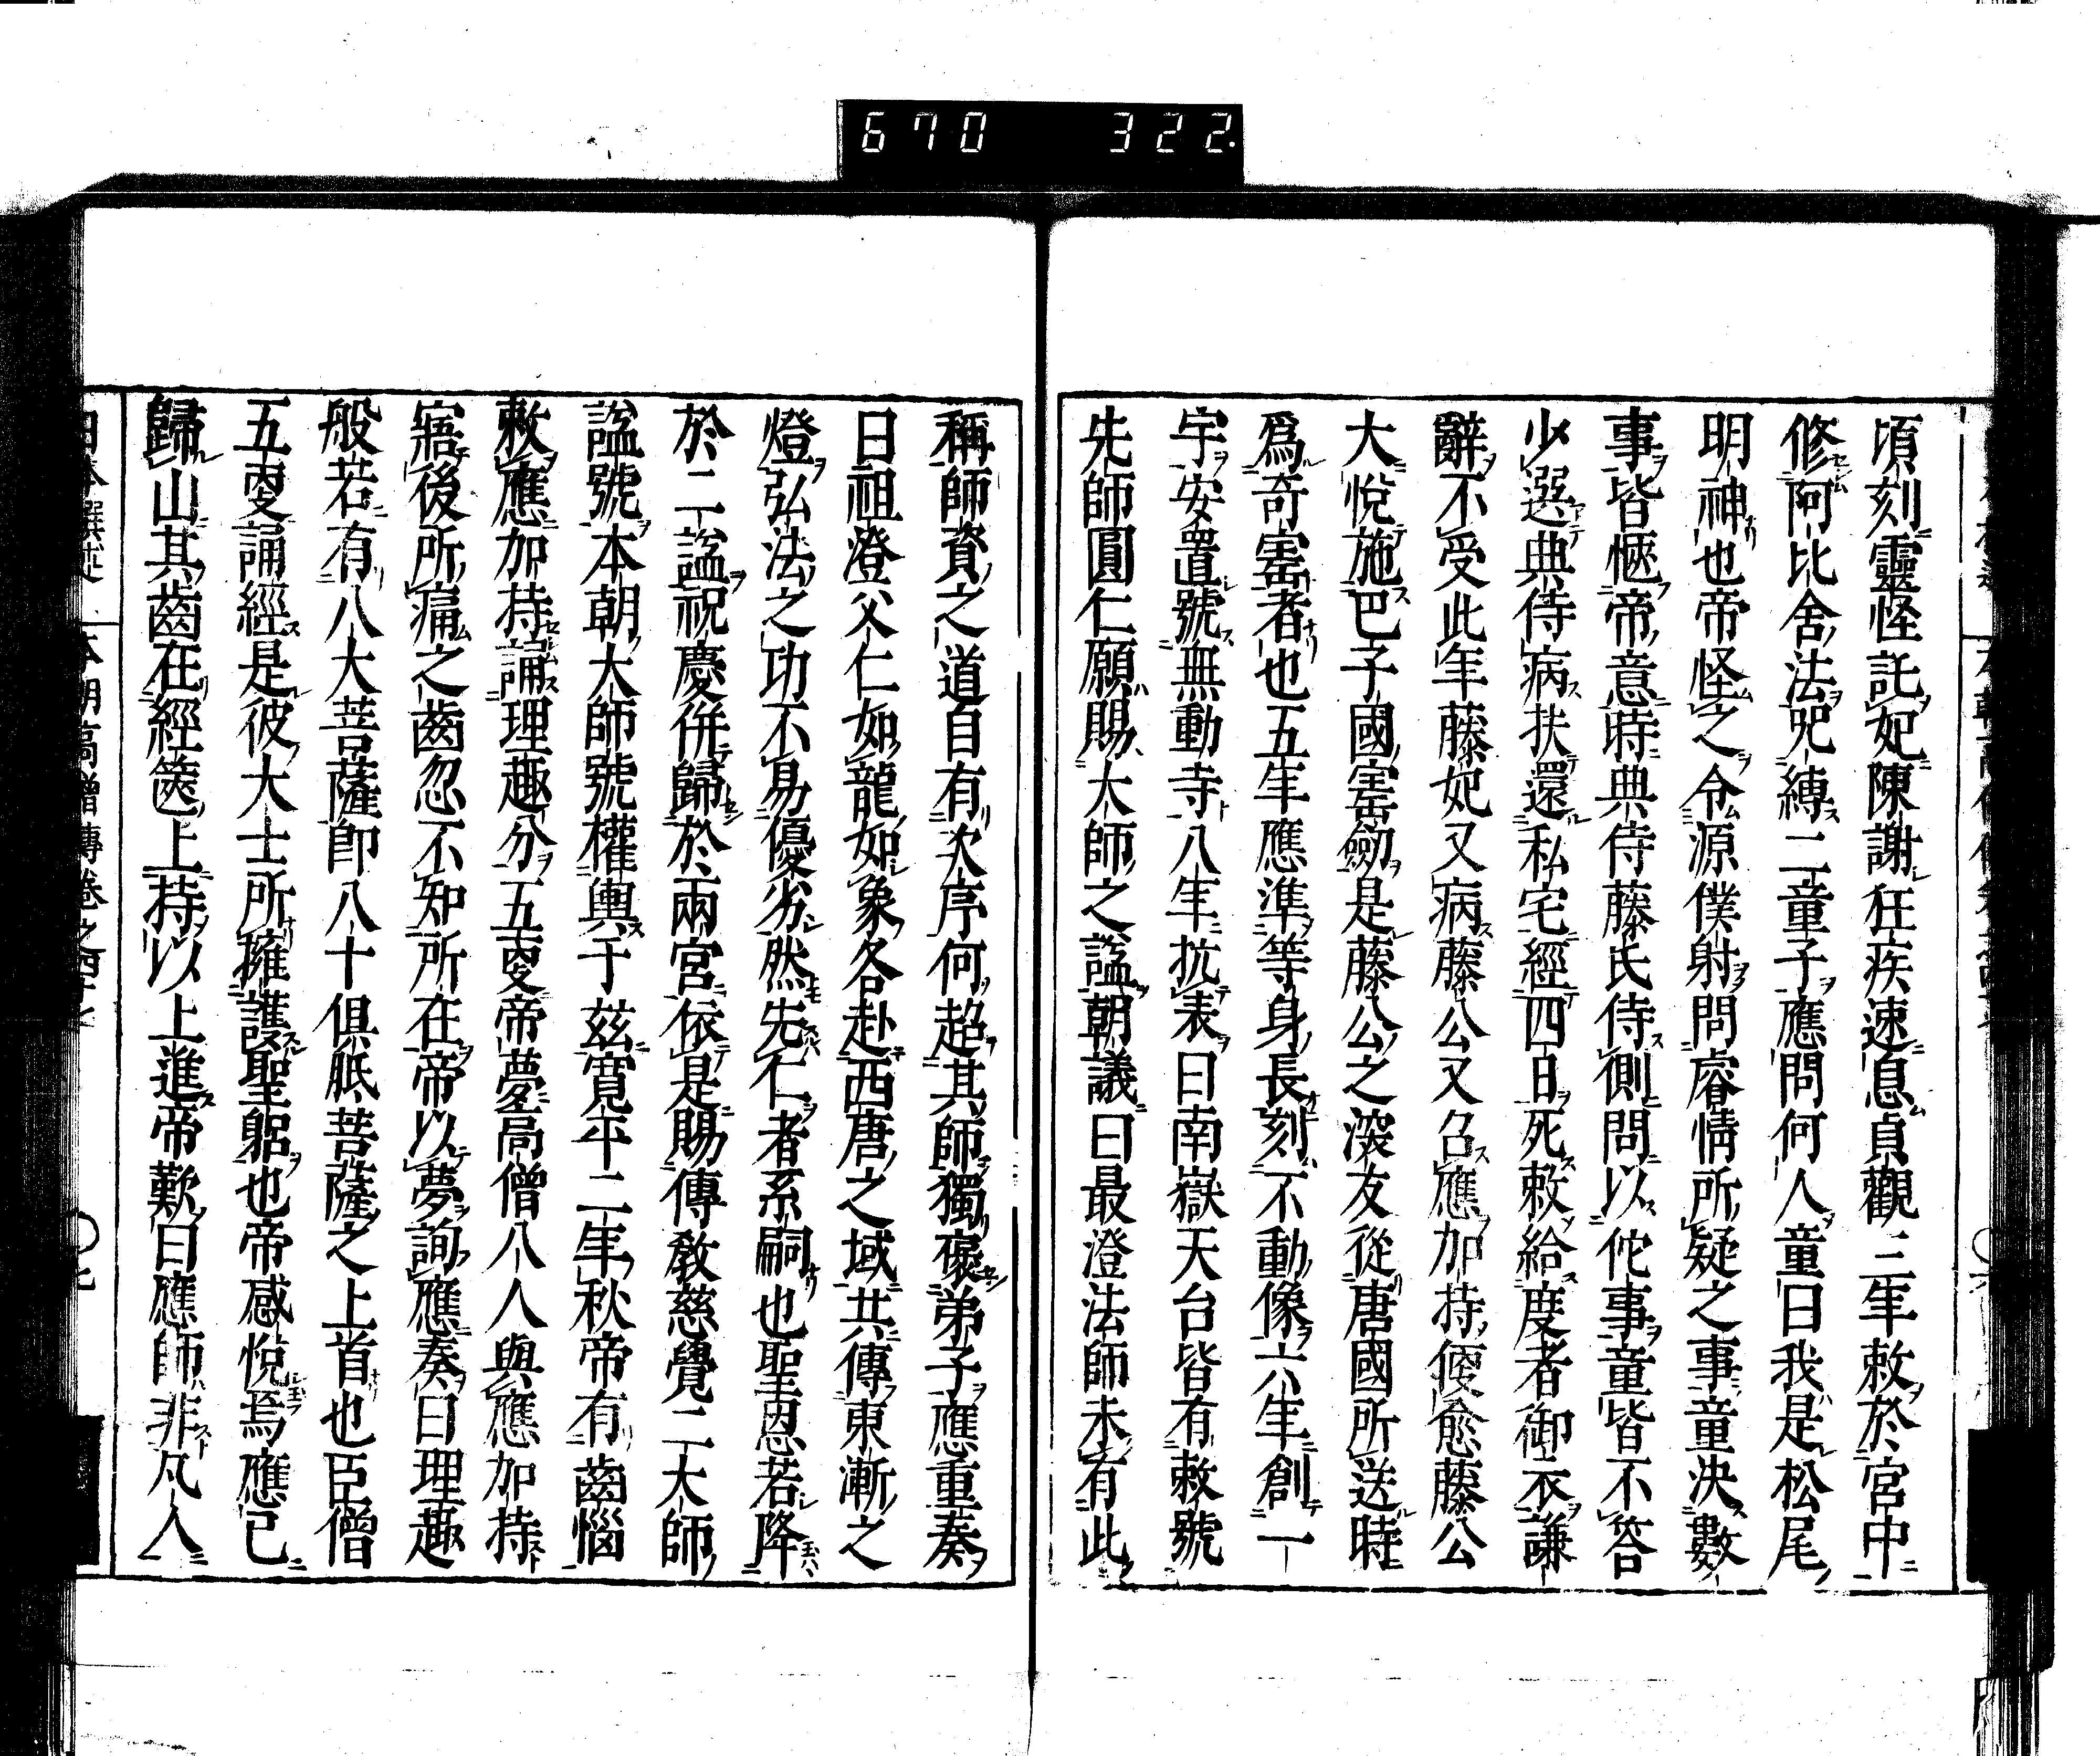 670 322
頃刻靈怪託妃陳謝狂疾速息貞觀三年敕於宮中
修阿比舍法呪縛二童子應問何人童曰我是松尾
明神也帝怪之令源僕射問睿情所疑之事童決數
事皆愜帝意時典侍藤氏侍側問以佗事童皆不答
少選典侍病扶還私宅經四日死敕給度者御衣謙
辭不受此年藤妃又病藤公又召應加持便愈藤公
大悅施巴子國寶劒是藤公之深友從唐國所送時
爲奇寶者也五年應準等身長刻不動像六年創一
宇安置號無動寺八年抗表曰南嶽天台皆有敕號
先師圓仁願賜大師之諡朝議曰最澄法師未有此
稱師資之道自有次序何超其師獨褒弟子應重奏
曰祖澄父仁如龍如象各赴西唐之域共傳東漸之
燈弘法之功不易優劣然先仁者系嗣也聖恩若降
於二諡祝慶併歸於兩宮依是賜傳教慈覺二大師
諡號本朝大師號權輿于茲寬平二年秋帝有齒惱
敕應加持誦理趣分五夜帝夢高僧八人與應加持
寤後所痛之齒忽不知所在帝以夢詢應奏曰理趣
般若有八大菩薩卽八十俱胝菩薩之上首也臣僧
五夜誦經是彼大士所擁護聖躬也帝感悅焉應已
歸山其齒在經篋上持以上進帝歎曰應師非凡人
日本撰述 本朝高僧傳卷之四十七 〇七